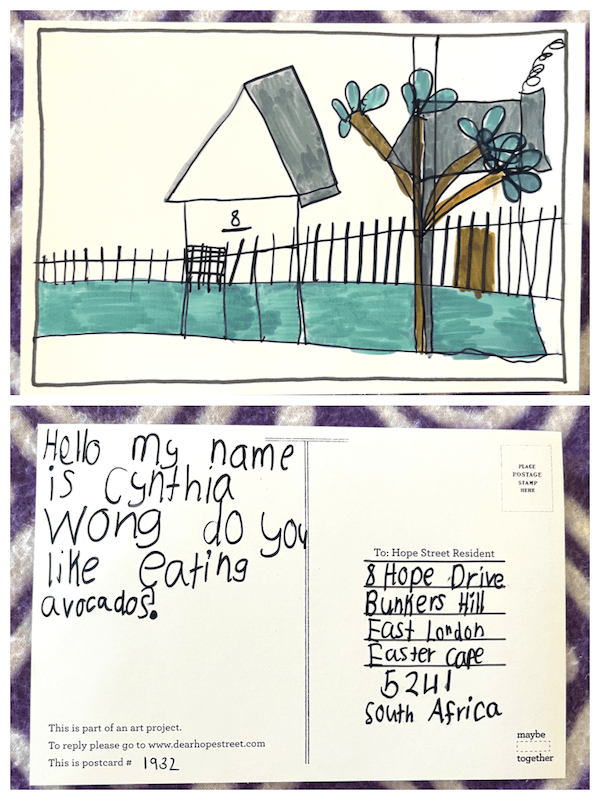 8
Hello my name
is Cynthia
Wong do you
like eating
avocados?
This is part of an art project.
To reply please go to www.dearhopestreet.com
This is postcard # 1932
PLACE
POSTAGE
STAMP
HERE
To: Hope Street Resident
8 Hope Drive
Bunkers Hill
East London
Easter Cape
5241
South Africa
maybe
together